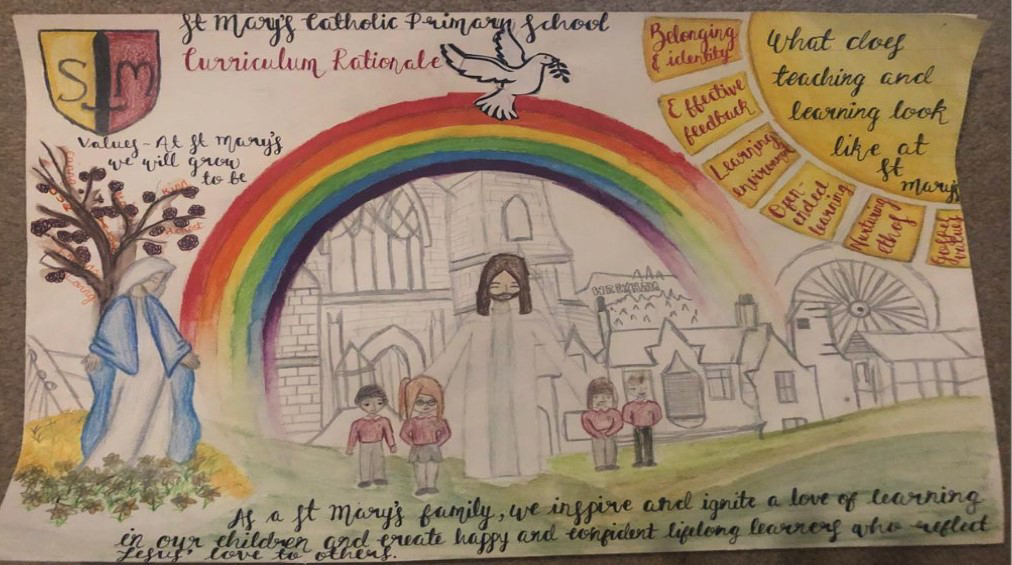 St Mary's Catholic Primary School
Curriculum Rationale
SM
Values - At St Mary's
we will grow
to be
kind
loving
Belonging
& identity
Effective
feedback
Learning
environment
Open-
ended
learning
Nurturing
ethos
Gospel
values
What does
teaching and
learning look
like at
St
Mary's
As a St Mary's family, we inspire and ignite a love of learning
in our children and create happy and confident lifelong learners who reflect
Jesus' love to others.